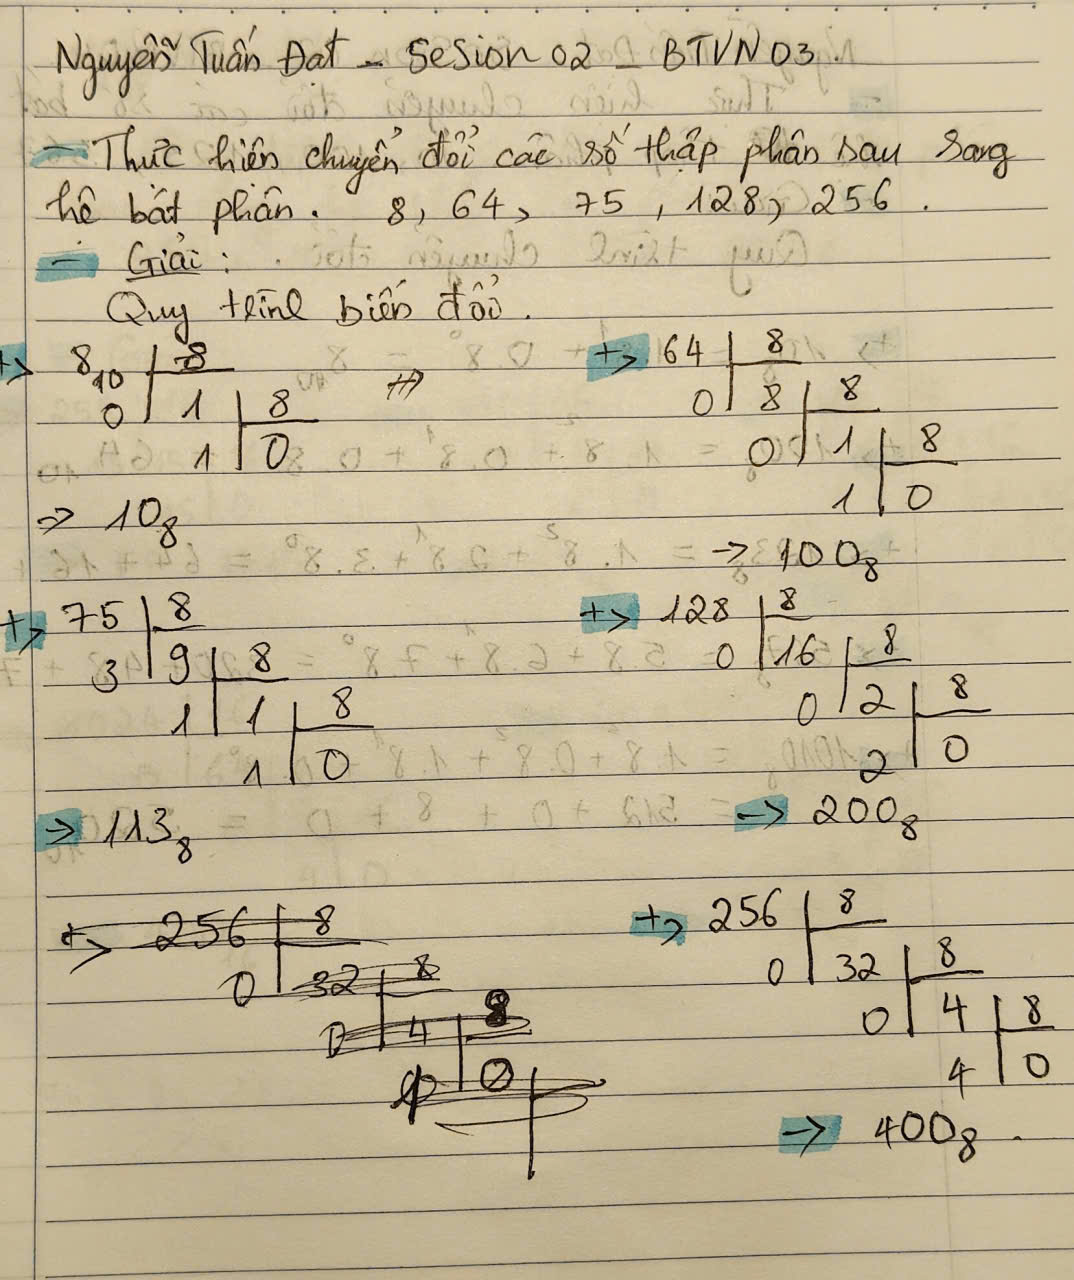 Nguyễn Tuấn Đạt - Sesion 02 - BTVN 03.
- Thực hiện chuyển đổi các số thập phân sau sang
hệ bát phân. 8, 64, 75, 128, 256.
- Giải:
Quy trình biến đổi.
+> 8₁₀ 8
0 1 8
1 0
=> 10₈
+> 64 8
0 8 8
0 1 8
1 0
-> 100₈
+> 75 8
3 9 8
1 1 8
1 0
=> 113₈
+> 128 8
0 16 8
0 2 8
2 0
-> 200₈
+> 256 8
0 32 8
0 4 8
0
+> 256 8
0 32 8
0 4 8
4 0
=> 400₈.